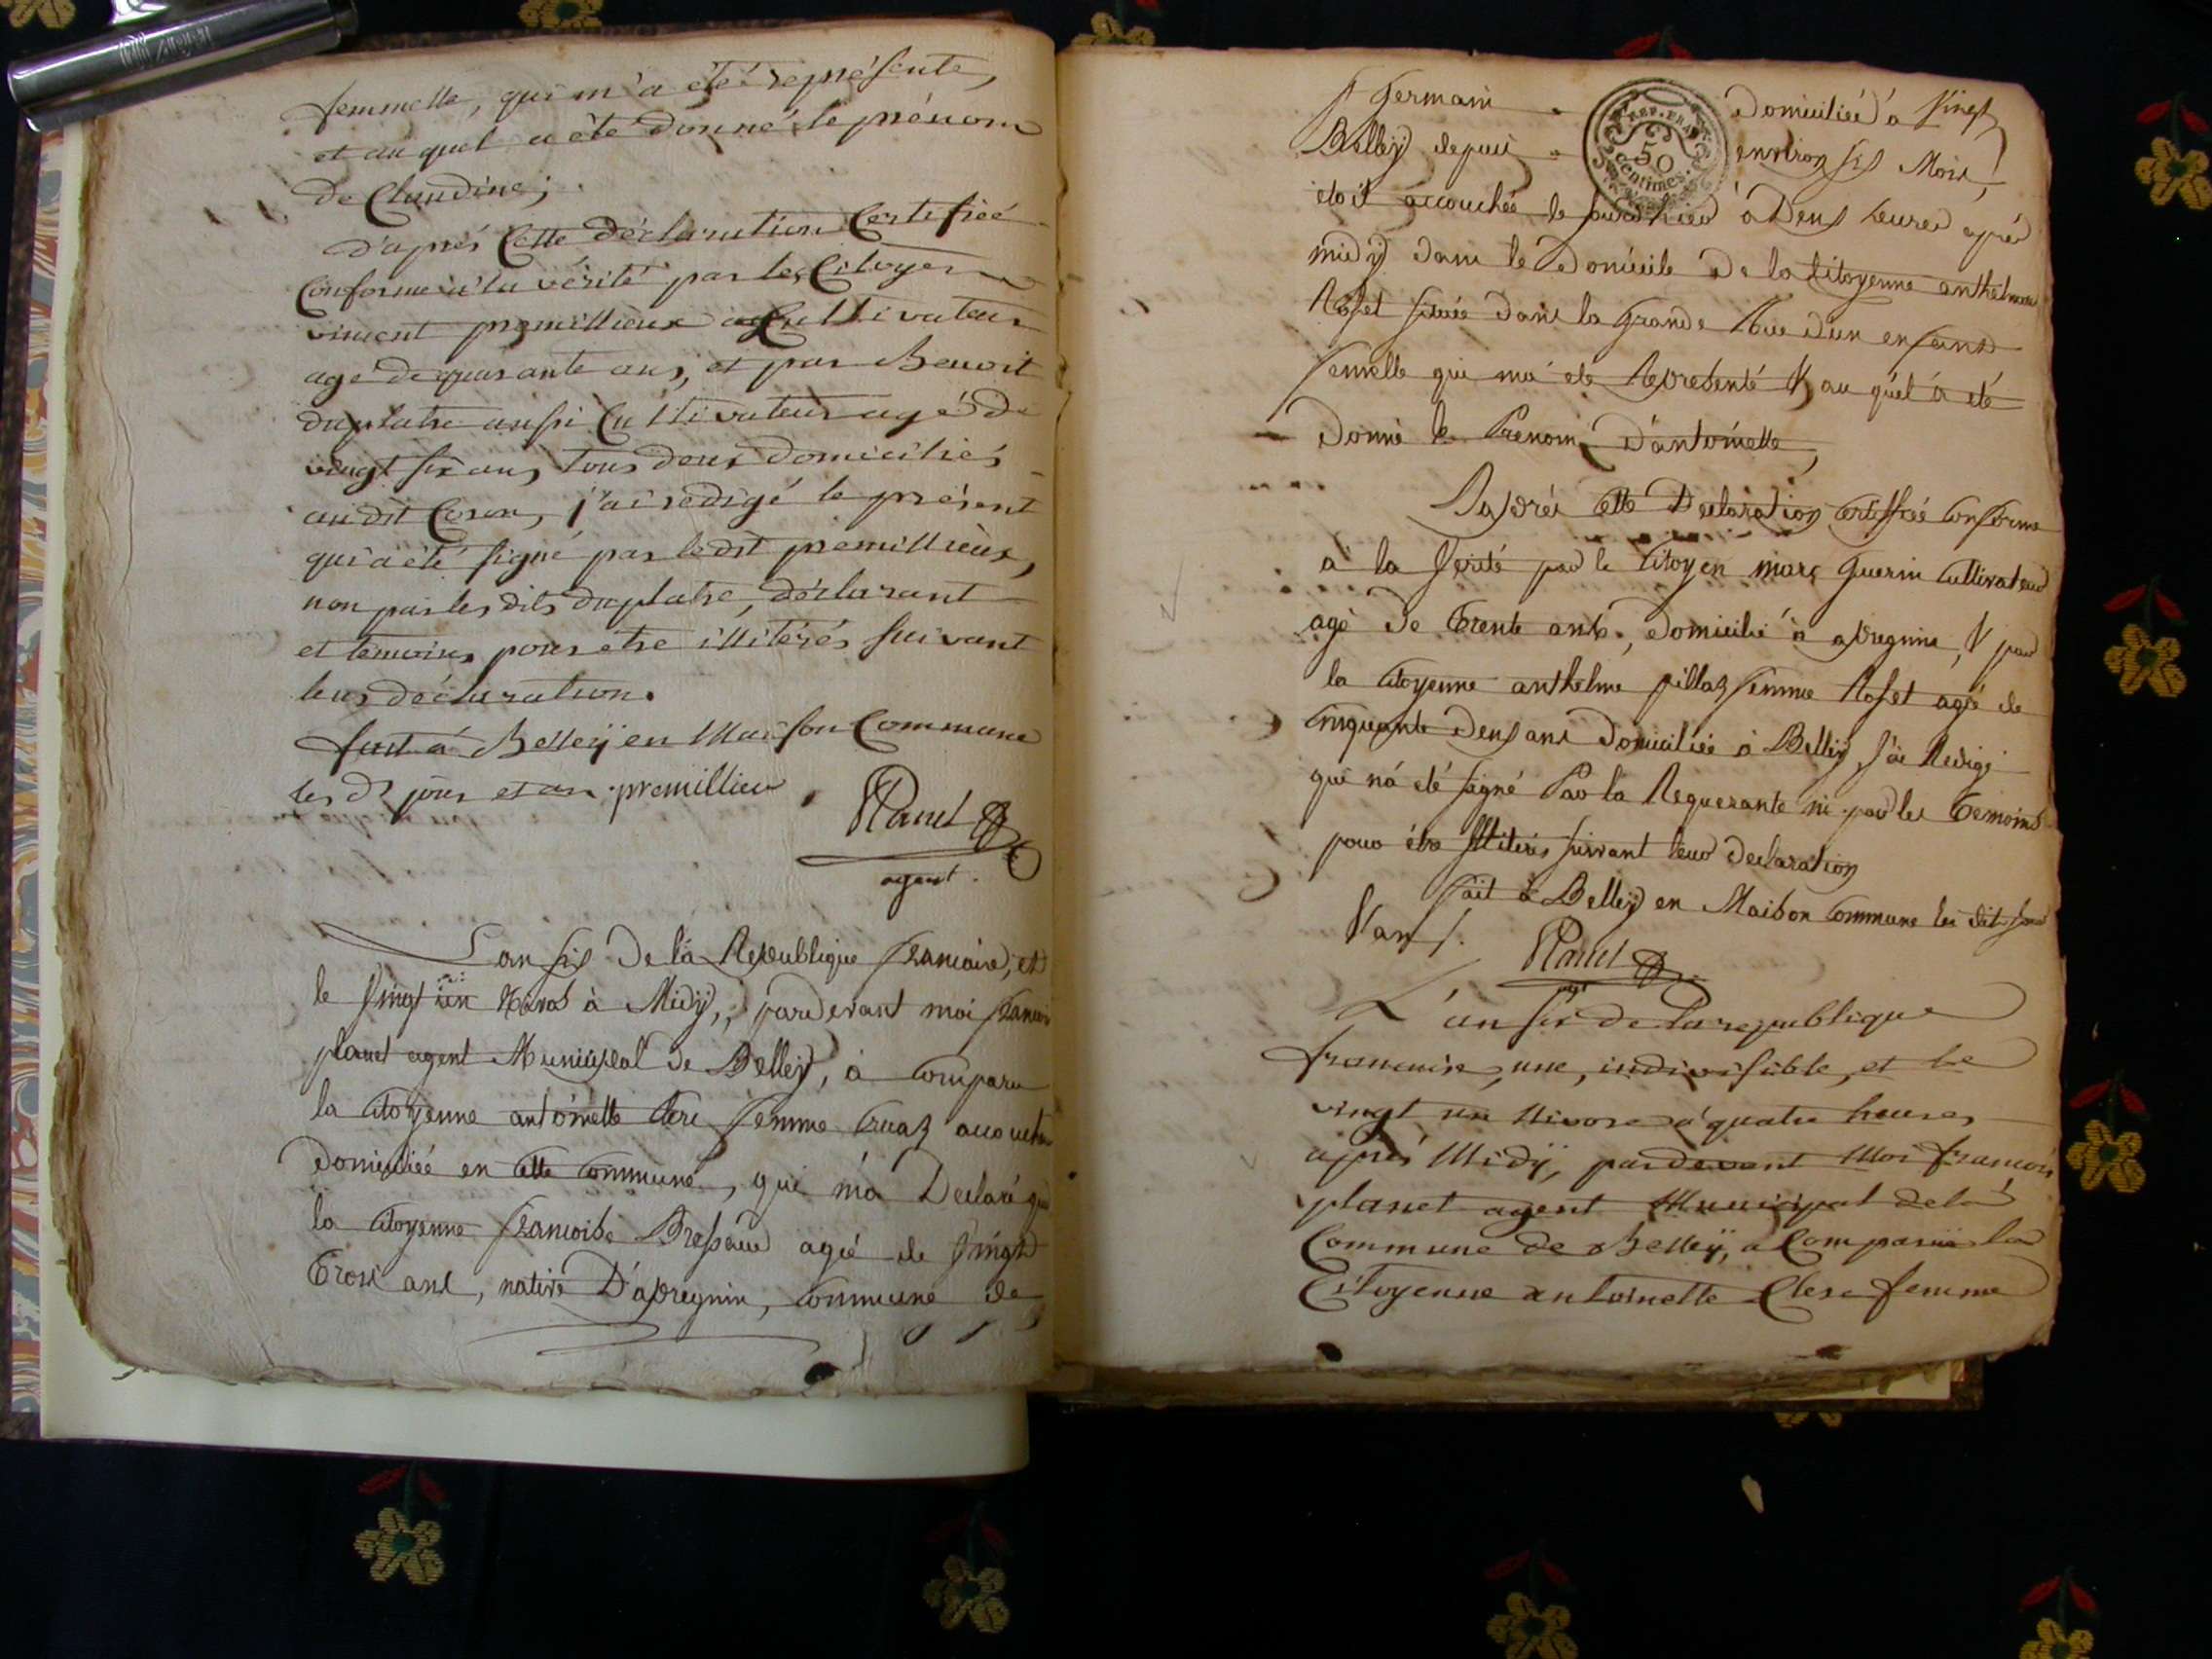 femmelle, qui m'a été représenté,
et au quel a été donné le prénom
de Claudine;
d'après Cette déclaration Certifiée
Conforme à la vérité par les Citoyens
vincent premillieux Cultivateur
agé de quarante ans, et par Benoit
duplatre aussi Cultivateur agé de
vingt six ans, tous deux domiciliés
au dit Coron, j'ai redigé le présent
qui a été signé par le dit premillieux,
non par les dits duplatre, déclarant
et temoins pour etre illitérés suivant
leur déclaration.
fait à Belleÿ en Maison Commune
les ds jour et an premillieu
Planet
agent.
L'an six De la Republique francaise, et
le vingt un Nivos à Midÿ, pardevant moi francois
planet agent Municipal de Belleÿ, à comparu
la citoyenne antoinette Clere femme Cruaz
domiciliée en cette commune, qui m'a Declaré que
la citoyenne francoise Bresseux agée de vingt
trois ans, native D'apregnin, commune de
St Germain domiciliée à
Belleÿ depuis environ six Mois,
etoit accouchée le jourdhier à Deux heures après
midÿ dans le Domicile De la Citoyenne anthelme
Rosset située dans la Grande Rue d'un enfant
femelle qui m'a eté Representé & au quel a eté
donné le Prenom D'antoinette,
D'après cette Declaration certiffiée conforme
a la verité par le Citoyen marc Guerin Cultivateur
agé De trente ans, domicilié à apregnin, & par
la citoyenne anthelme pillaz femme Rosset agée de
cinquante Deux ans domiciliée à Belleÿ, j'ai Redigé
qui n'a eté signé Par la Requerante ni par les temoins
pour être illiterés suivant leur declaration
fait à Belleÿ en Maison Commune les dit jour
& an
Planet
L'an six de la republique
francaise, une, indivisible, et le
vingt un Nivose à quatre heures
après Midÿ, pardevant Moi francois
planet agent Municipal de la
Commune de Belleÿ, a Comparue la
Citoyenne antoinette Clere femme
REP. FRA
50
centimes.